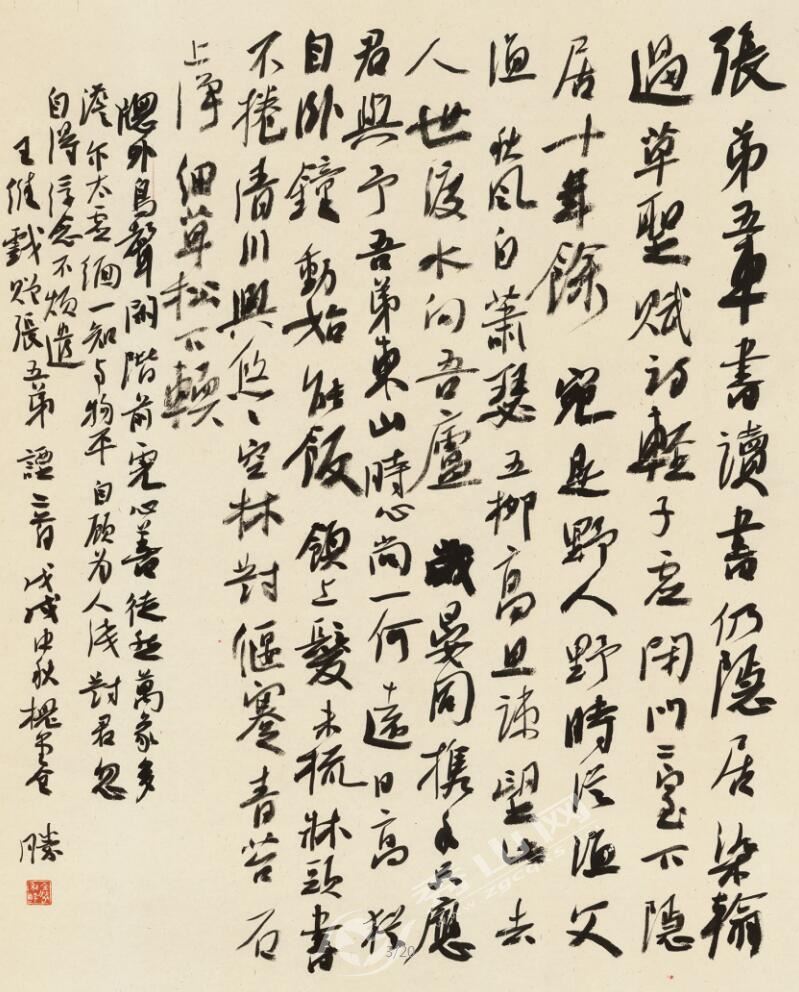 張弟五車書讀書仍隱居染翰
過草聖賦詩輕子虛閉門二室下隱
居十年餘宛是野人野時從漁父
漁秋風自蕭瑟五柳高且疎望此去
人世渡水向吾廬歲晏同攜手只應
君與予吾弟東山時心尚一何遠日高猶
自卧鐘動始能飯領上髮未梳牀頭書
不捲清川興悠々空林對偃蹇青苔石
上淨細草松下輭
窗外鳥聲閑階前虎心善徒然萬象多
澹尔太虛緬一知与物平自顧为人浅對君忽
自得浮念不煩遣
王維戲贈張五弟諲二首戊戌中秋槐堂 勝
3/20